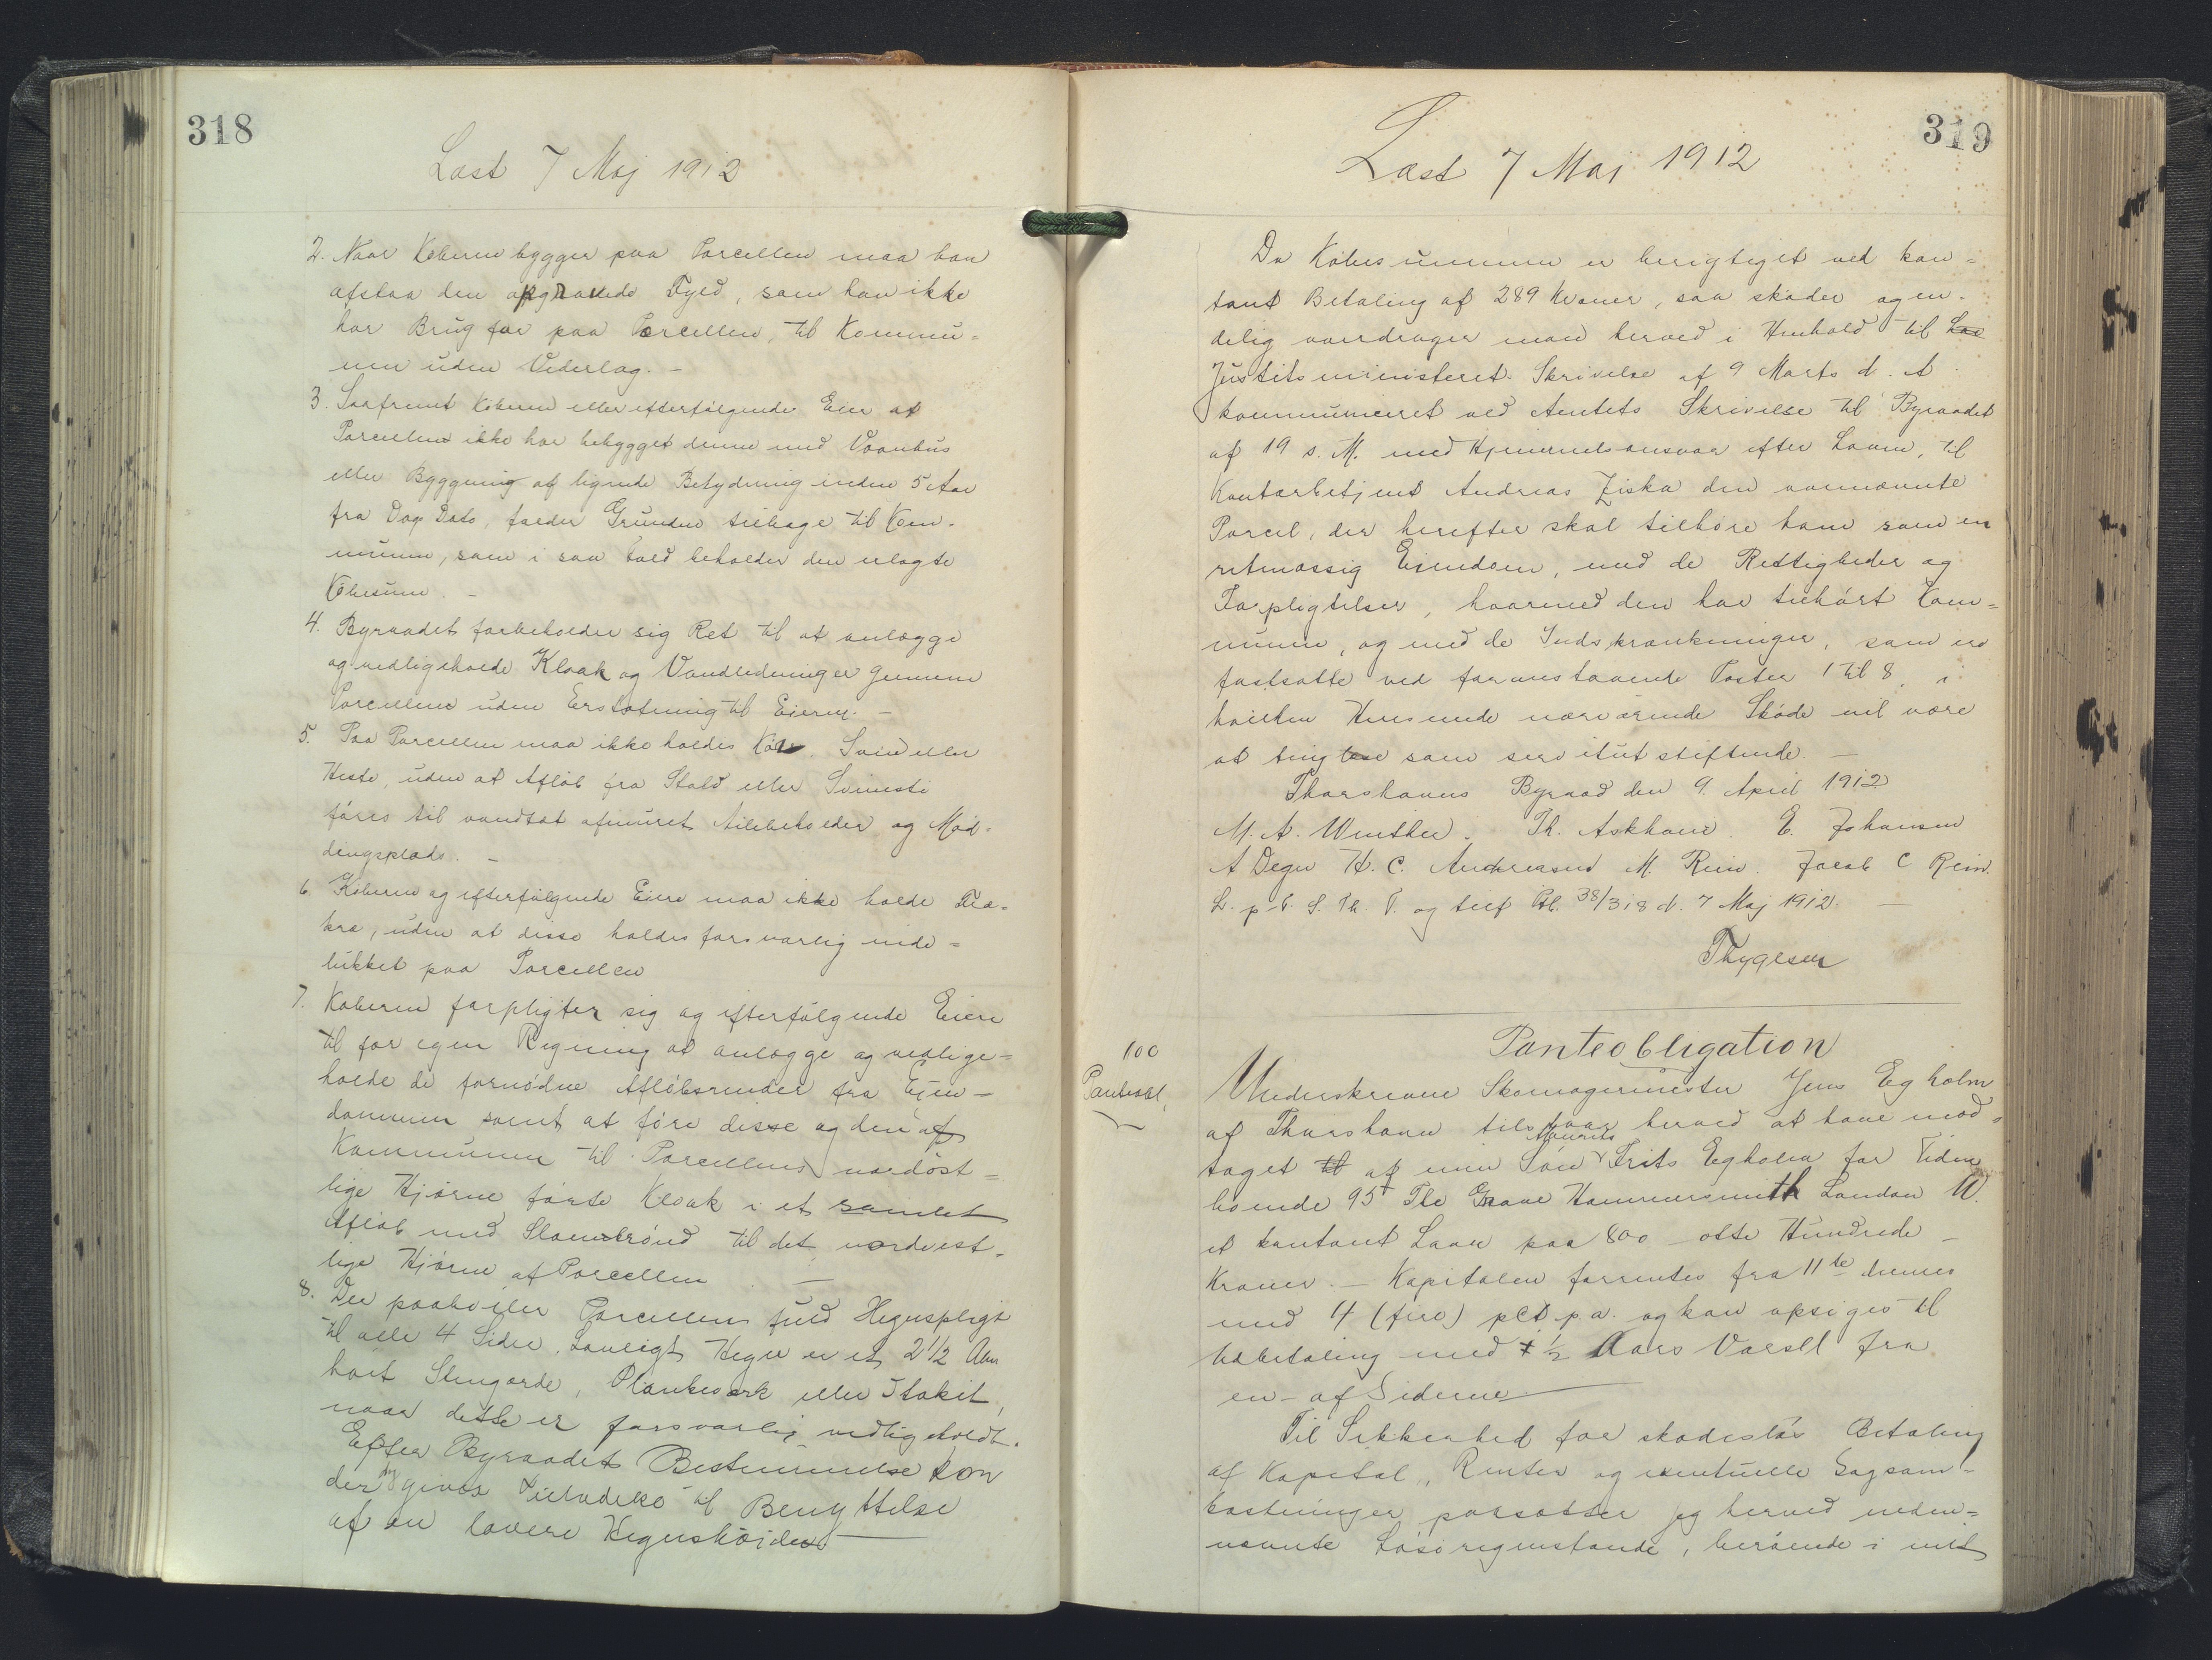 318
Læst 7 Maj 1912
2. Naar Køberen bygger paa Parcellen maa han
afstaa den opgravede Fyld, som han ikke
har Brug for paa Parcellen, til Kommu=
nen uden Vederlag. -
3. Saafremt Køberen eller efterfølgende Eier af
Parcellen ikke har bebygget denne med Vaanhus
eller Bygning af lignende Betydning inden 5 Aar
fra Dags Dato, falder Grunden tilbage til Kom-
munen, som i saa Fald beholder den erlagte
Købesum. -
4. Byraadet forbeholder sig Ret til at anlægge
og vedligeholde Kloak og Vandledninger gennem
Parcellen uden Erstatning til Eieren. -
5. Paa Parcellen maa ikke holdes Køer, Svin eller
Heste, uden at Afløb fra Stald eller Svinesti
føres til vandtæt afmuret Ailebeholder og Mød-
dingsplads. -
6. Køberen og efterfølgende Eiere maa ikke holde Fjer-
kræ, uden at disse holdes forsvarlig inde=
lukket paa Parcellen
7. Køberen forpligter sig og efterfølgende Eiere
til for egen Regning at anlægge og vedlige=
holde de fornødne Afløbsrender fra Ejen-
dommen samt at føre disse og den af
Kommunen til Parcellens nordøst=
lige Hjørne førte Kloak i et samlet
Afløb med Slambrønd til det nordvest-
lige Hjørne af Parcellen -
8. Der paahviler Parcellen fuld Hegnspligt
til alle 4 Sider. Lovligt Hegn er et 2½ Alen
højt Stengærde, Plankeværk eller Stakit,
naar dette er forsvarlig vedligeholdt.
Efter Byraadets Bestemmelse kan
der dog gives Tilladelse til Benyttelse
af en lavere Hegnshøjde. -
319
Læst 7 Maj 1912
Da Købesummen er berigtiget ved kon=
tant Betaling af 289 Kroner, saa skøder og en-
delig overdrager man herved i Henhold til Lov
Justitsministeriet Skrivelse af 9 Marts d. A.
kommuniceret ved Amtets Skrivelse til Byraadet
af 19 s. M. med Hjemmelsansvar efter Loven, til
Kontorbetjent Andreas Ziska den ovennævnte
Parcel, der herefter skal tilhøre ham som en
retmæssig Eiendom, med de Rettigheder og
Forpligtelser, hvormed den har tilhørt Kom=
munen, og med de Indskrænkninger, som er
fastsatte ved foranstaaende Poster 1 til 8, i
hvilken Henseende nærværende Skøde vil være
at tinglæse som servitutstiftende. -
Thorshavns Byraad den 9. April 1912
M. A. Winther. Th. Askham. E. Johansen
A Degn H. C. Andreasen M. Rein. Jacob C Rein.
L. p. e. S. Th. T. og tilf Pl. 38/318 d. 7 Maj 1912. -
Thygesen
Panteobligation
100
Panteobl.
Underskrevne Skomagermester Jens Egholm
af Thorshavn tilstaar herved at have mod-
taget til af min Søn Mouritz Frits Egholm for Tiden
boende 95 The Grove Hammersmith London W.
et kontant Laan paa 800 - otte Hundrede -
Kroner. - Kapitalen forrentes fra 11te dennes
med 4 (fire) pCt. p.a. og kan opsiges til
Udbetaling med ½ Aars Varsel fra
en - af Siderne. -
Til Sikkerhed for skadesløs Betaling
af Kapital, Renter og eventuelle Sagsom=
kostninger pantsætter jeg herved neden=
nævnte Løsøregenstande, beroende i mit